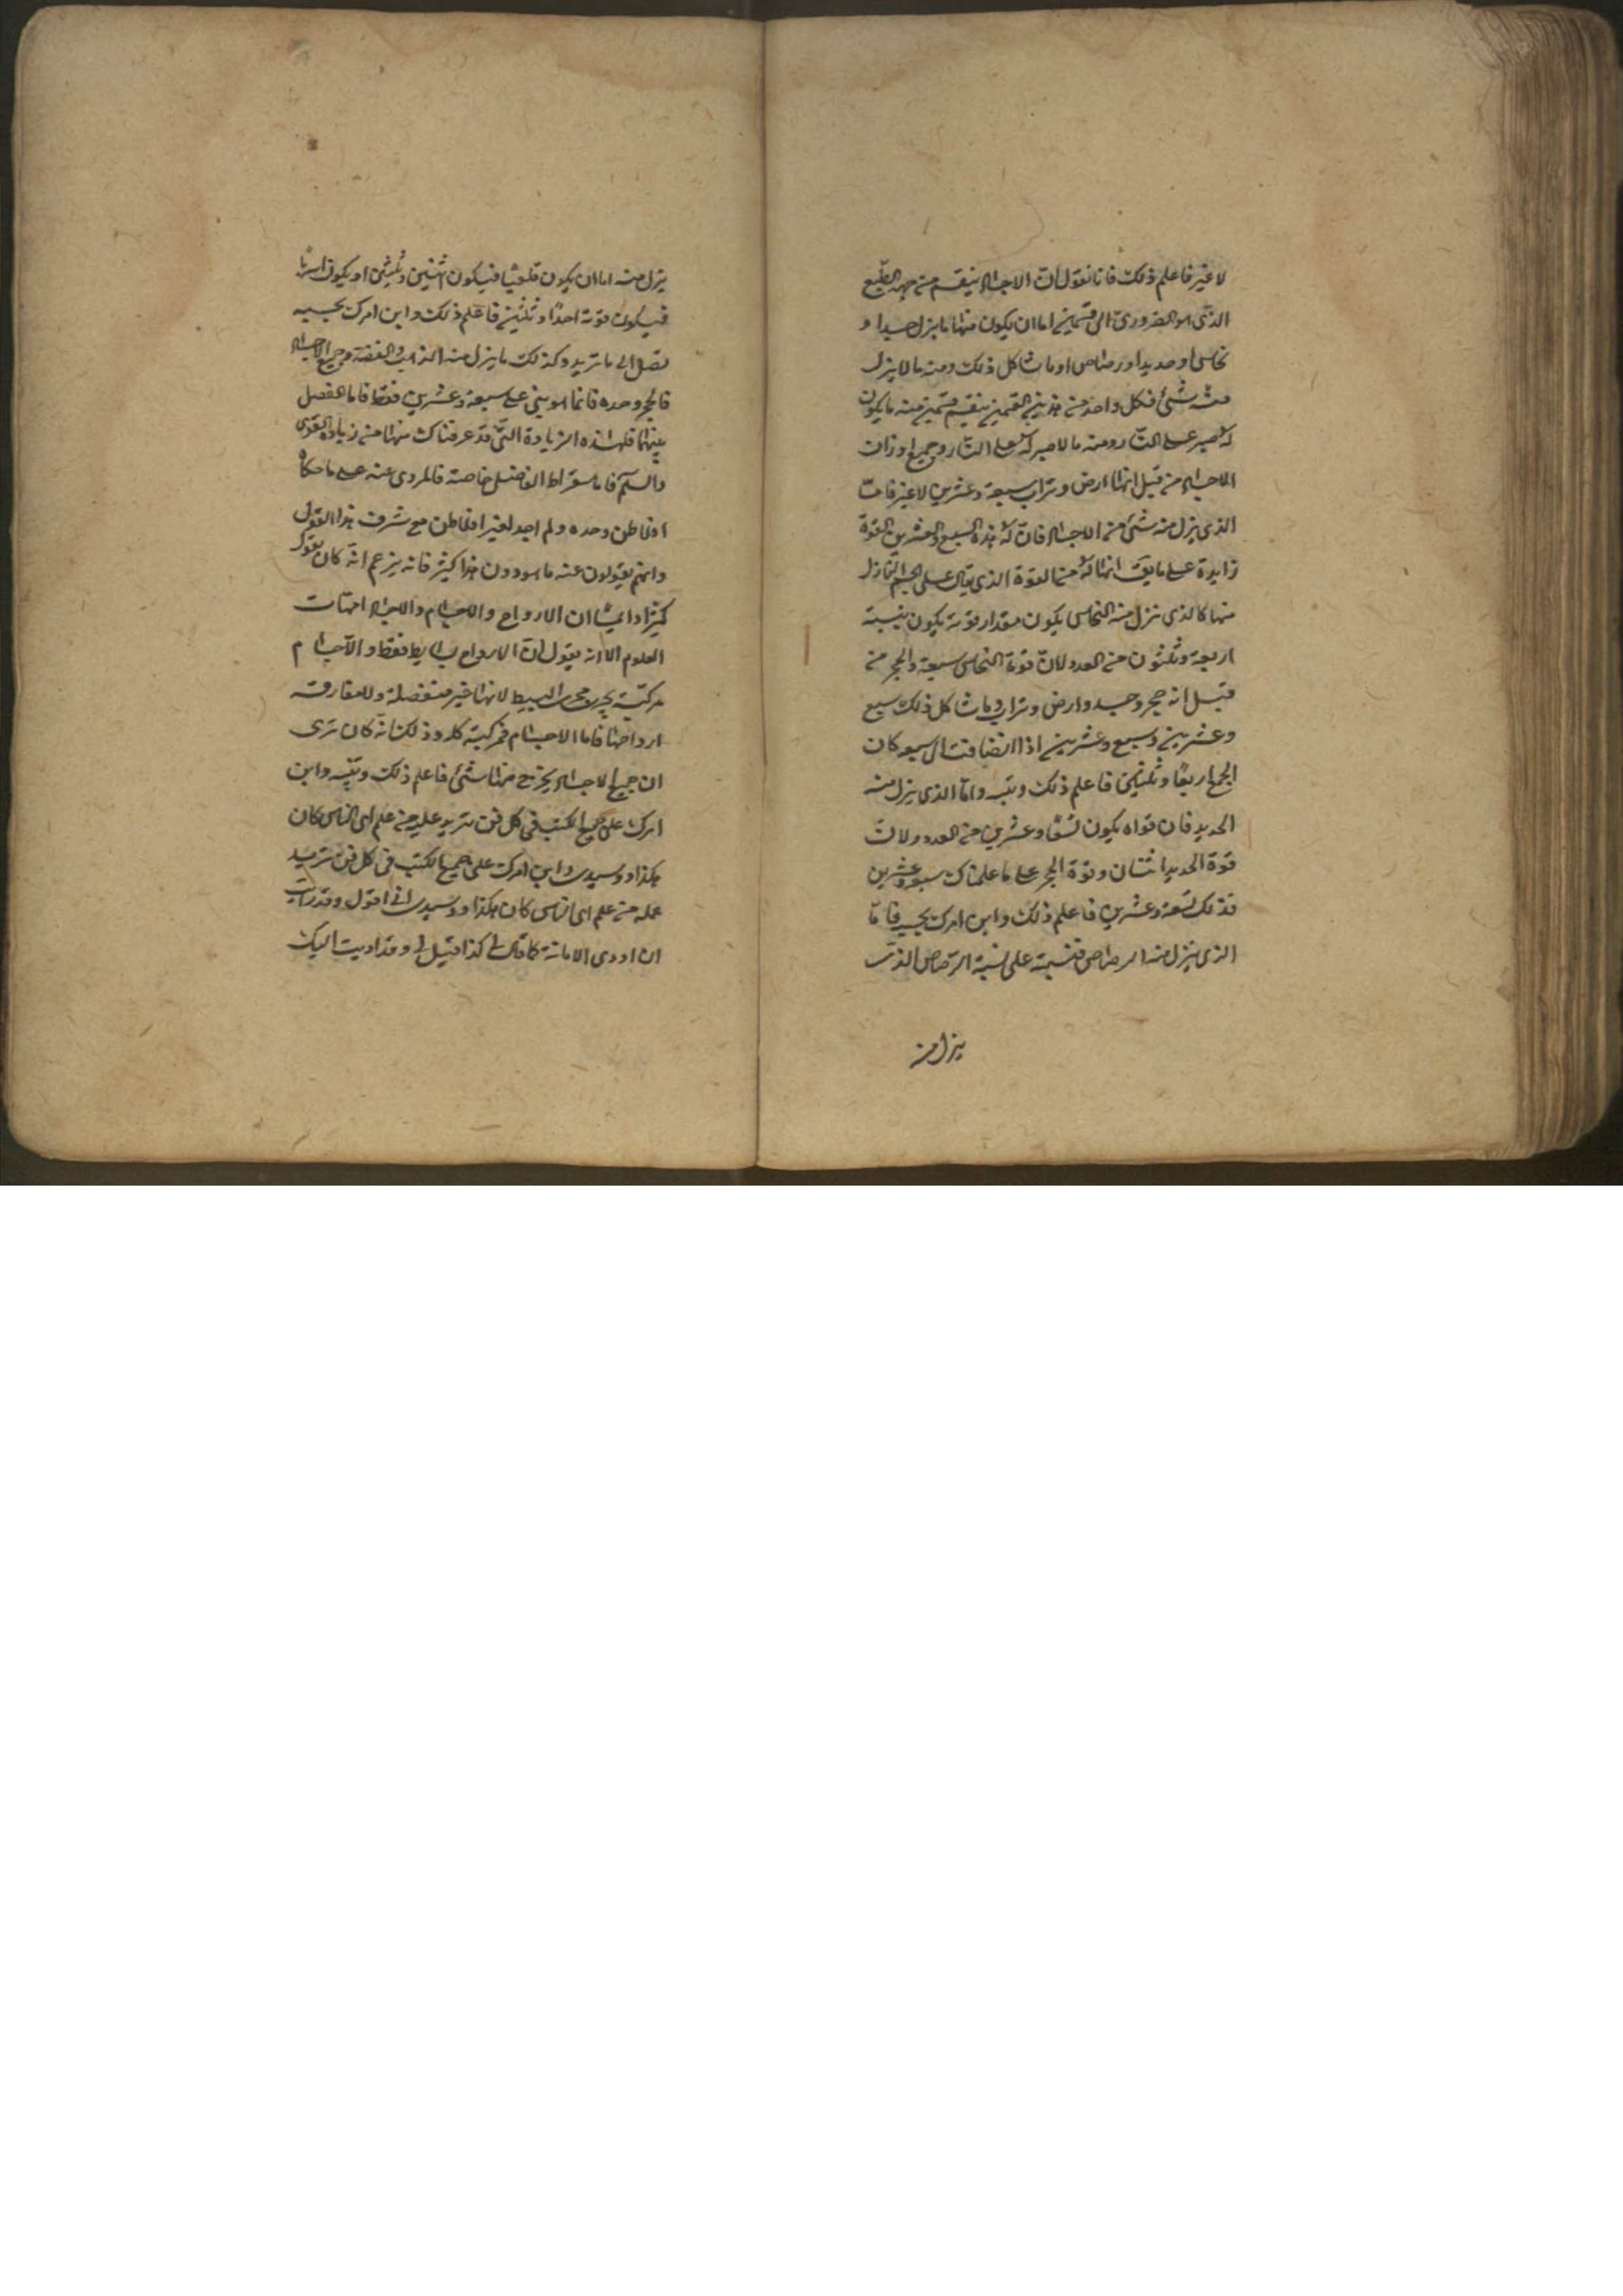 لا غير فاعلم ذلك فانا نقول ان الاحجار ينقسم من جهة الطبع
الذى هو الضرورى الى قسمين اما ان يكون منها ما ينزل جسدا و
نحاس او حديد او رصاص او ما شاكل ذلك ومنه ما لا ينزل
منه شئ فكل واحد من هذين القسمين ينقسم قسمين منه ما يكون
له صبر على النار ومنه ما لا صبر له على النار وجميع اوزان
الاحجار من قبل انها ارض وتراب سبعة وعشرين لا غير فامّا
الذى ينزل منه شئ من الاحجار فان له هذه السبع والعشرين القوة
زايدة على ما يق انها له من القوة الذى يقال على الجسم النازل
منها كالذى ينزل منه النحاس يكون مقدار قوته يكون بنسبة
اربعة وثلثون من العدد لان قوة النحاس سبعة والحجر من
قبل انه حجر وجسد وارض وتراب وما شاكل ذلك سبع
وعشرين وسبع وعشرين اذا انضافت الى سبع كان
الجمع اربعًا وثلثين فاعلم ذلك وتبيّنه وامّا الذى ينزل منه
الحديد فان قواه يكون تسعًا وعشرين من العدد ولان
قوة الحديد اثنتان وقوة الحجر على ما علمناك سبع وعشرين
فذلك تسعة وعشرين فاعلم ذلك وابن امرك بحسبه فامّا
الذى ينزل منه الرصاص فنسبته على نسبة الرصاص الذى
ينزل منه
ينزل منه اما ان يكون قلعيًا فيكون اثنين وثلثين او يكون اسربًا
فيكون قوته احدًا وثلثين فاعلم ذلك وابن امرك بحسبه
تصل الى ما تريد وكذلك ما ينزل منه الذهب والفضة وجميع الاحجار
فالحجر وحده فانما هو يبنى على سبعة وعشرين فقط فاما الفصل
بينهما فلهذه الزيادة التى قد عرفناك منها من زيادة القوى
والسلم فاما سقراط الفاضل خاصة فالمروى عنه على ما حكاه
افلاطن وحده ولم اجد لغير افلاطن مع شرف هذا القول
وانهم يقولون عنه ما هو دون هذا كثير فانه يزعم انه كان يقول
كثيرا دايما ان الارواح والاجسام والاحجار امهات
العلوم الا انه يقول ان الارواح بسايط فقط والاجسام
مركبة يجرى مجرى البسيط لانها غير منفصلة ولا مفارقة
ارواحها فاما الاجسام فمركبة كلها وذلك انه كان يرى
ان جميع الاحجار يخرج منها شئ فاعلم ذلك وتبيّنه وابن
امرك على جميع الكتب فى كل فن تريد عليه من علم اى الناس كان
هكذا وسيدى وابن امرك على جميع الكتب فى كل فن تريد
عمله من علم اى الناس كان هكذا وسيدى انى اقول وقد رايت
ان اودى الامانة كما قال لى كذا قيل لى وقد اديت اليك